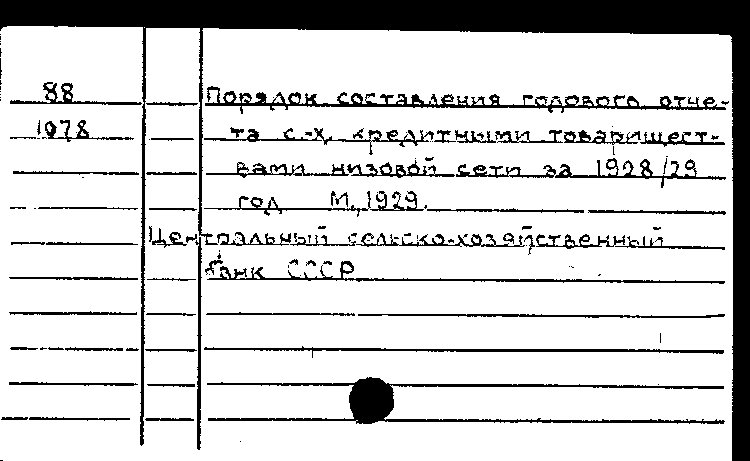 88 Порядок составления годового отче-
1078 та с.-х. кредитными товарищест-
вами низовой сети за 1928/29
год М., 1929.
Центральный сельско-хозяйственный
банк СССР